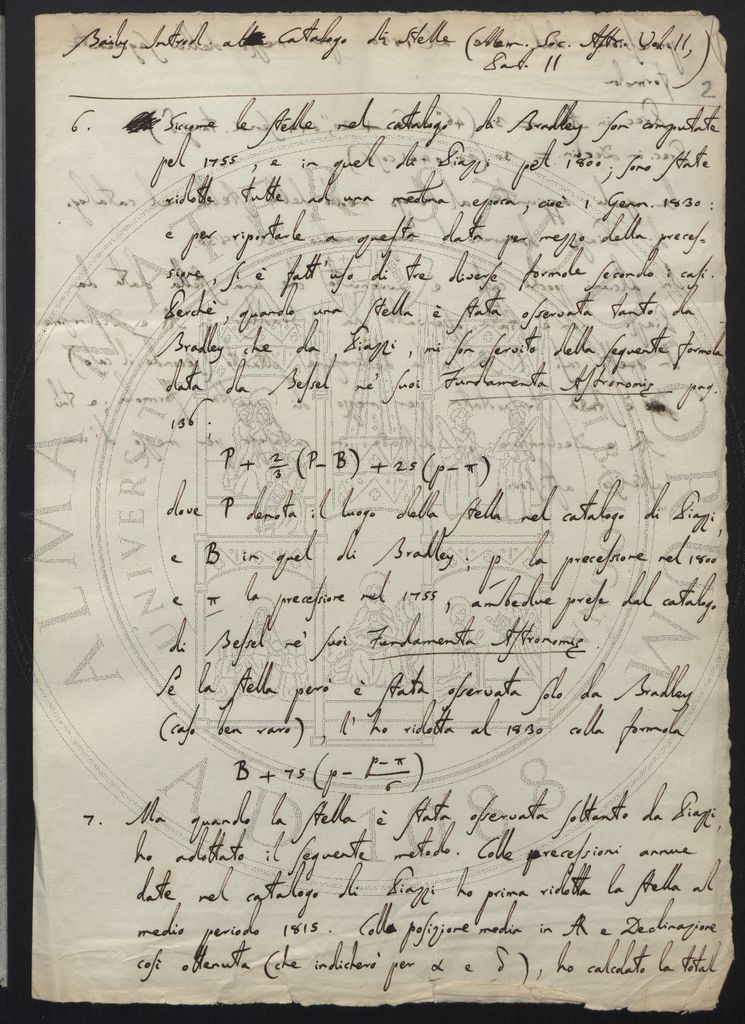 Baily Introd. al Catalogo di Stelle (Mem. Soc. Astro. Vol. II,
Par. II
2
6. Siccome le stelle nel catalogo di Bradley son computate
pel 1755, e in quel di Piazzi pel 1800; sono state
ridotte tutte ad una medma epoca, cioè 1 Genn. 1830:
e per riportarle a questa data per mezzo della preces-
sione, si è fatt'uso di tre diverse formole secondo i casi.
Perchè, quando una stella è stata osservata tanto da
Bradley che da Piazzi, mi son servito della seguente formola
data da Bessel ne' suoi Fundamenta Astronomiæ pag.
136.
P + 2/3 (P - B) + 25 (p - π)
dove P denota il luogo della stella nel catalogo di Piazzi,
e B in quel di Bradley, p la precessione nel 1800
e π la precessione nel 1755, ambedue prese dal catalogo
di Bessel ne' suoi Fundamenta Astronomiæ.
Se la stella però è stata osservata solo da Bradley
(caso ben raro), l'ho ridotta al 1830 colla formola
B + 75 (p - (p - π)/6)
7. Ma quando la stella è stata osservata soltanto da Piazzi,
ho adottato il seguente metodo. Colle precessioni annue
date nel catalogo di Piazzi ho prima ridotta la stella al
medio periodo 1815. Colla posizione media in AR e Declinazione
così ottenuta (che indicherò per α e δ), ho calcolato la total
ALMA MATER STUDIORUM
UNIVERSITÀ DI BOLOGNA
A.D. 1088